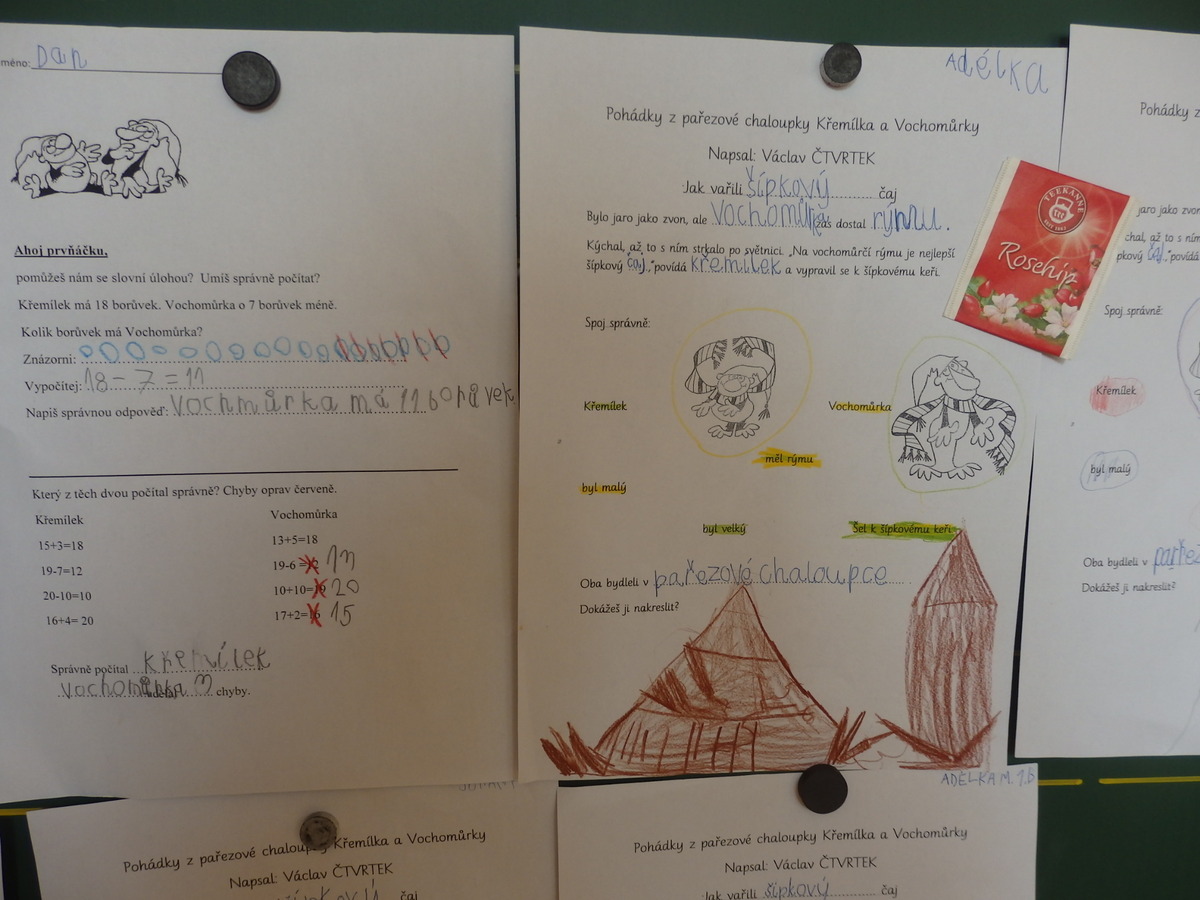 méno: Dan
Ahoj prvňáčku,
pomůžeš nám se slovní úlohou? Umíš správně počítat?
Křemílek má 18 borůvek. Vochomůrka o 7 borůvek méně.
Kolik borůvek má Vochomůrka?
Znázorni:
Vypočítej: 18 - 7 = 11
Napiš správnou odpověď: Vochmůrka má 11 borůvek
Který z těch dvou počítal správně? Chyby oprav červeně.
Křemílek
15+3=18
19-7=12
20-10=10
16+4= 20
Vochomůrka
13+5=18
19-6 = 11
10+10= 20
17+2= 15
Správně počítal křemílek
vochomůrka udělal 3 chyby.
ADÉLKA
Pohádky z pařezové chaloupky Křemílka a Vochomůrky
Napsal: Václav ČTVRTEK
Jak vařili šípkový čaj
Bylo jaro jako zvon, ale Vochomůrka zas dostal rýmu.
Kýchal, až to s ním strkalo po světnici. „Na vochomůrčí rýmu je nejlepší
šípkový čaj,"povídá křemílek a vypravil se k šípkovému keři.
Spoj správně:
Křemílek
Vochomůrka
měl rýmu
byl malý
byl velký
Šel k šípkovému keři.
Oba bydleli v pařezové chaloupce
Dokážeš ji nakreslit?
TEEKANNE
Rosehip
Pohádky z
jaro jako zvon
chal, až to s ním
pkový čaj,"povídá
Spoj správně:
Křemílek
byl malý
Oba bydleli v pařez
Dokážeš ji nakreslit?
Pohádky z pařezové chaloupky Křemílka a Vochomůrky
Napsal: Václav ČTVRTEK
čaj
ADÉLKA M. 1.B
Pohádky z pařezové chaloupky Křemílka a Vochomůrky
Napsal: Václav ČTVRTEK
Jak vařili šípkový čaj